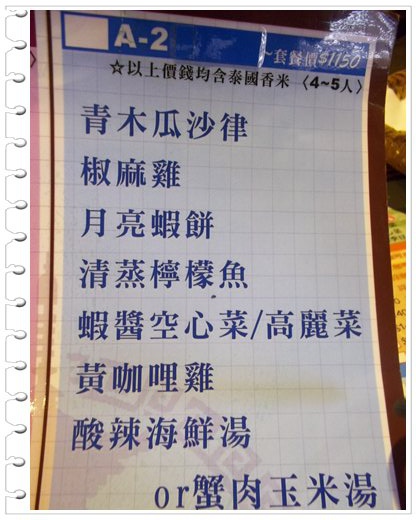 A-2
~套餐價$1150
☆以上價錢均含泰國香米〈4~5人〉
青木瓜沙律
椒麻雞
月亮蝦餅
清蒸檸檬魚
蝦醬空心菜/高麗菜
黃咖哩雞
酸辣海鮮湯
or蟹肉玉米湯